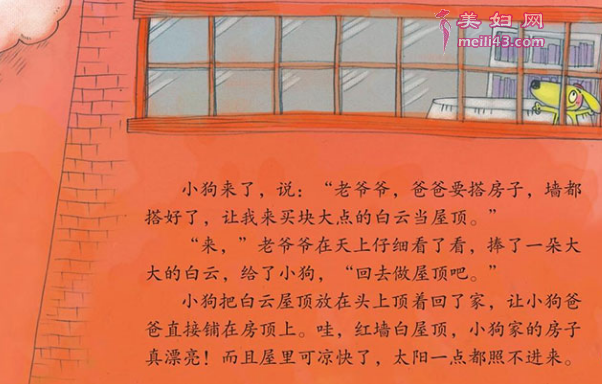 美妇网
meili43.com
小狗来了，说：“老爷爷，爸爸要搭房子，墙都
搭好了，让我来买块大点的白云当屋顶。”
“来，”老爷爷在天上仔细看了看，捧了一朵大
大的白云，给了小狗，“回去做屋顶吧。”
小狗把白云屋顶放在头上顶着回了家，让小狗爸
爸直接铺在房顶上。哇，红墙白屋顶，小狗家的房子
真漂亮！而且屋里可凉快了，太阳一点都照不进来。